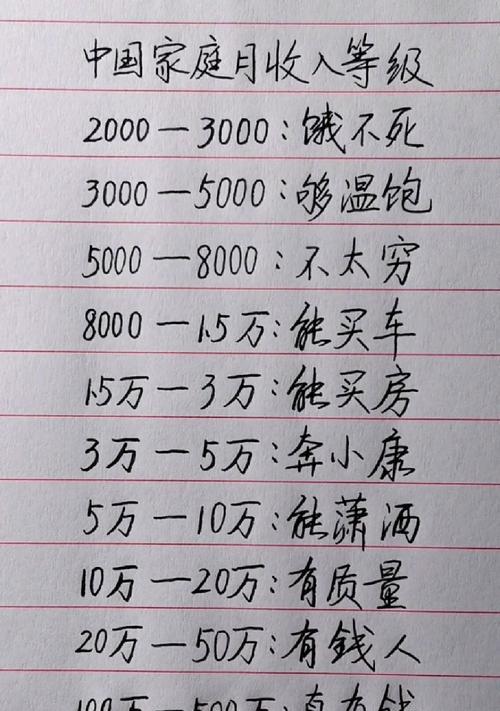 中国家庭月收入等级
2000—3000:饿不死
3000—5000:够温饱
5000—8000:不太穷
8000—1.5万:能买车
1.5万—3万:能买房
3万—5万:奔小康
5万—10万:能潇洒
10万—20万:有质量
20万—50万:有錢人
100万—500万:真有钱